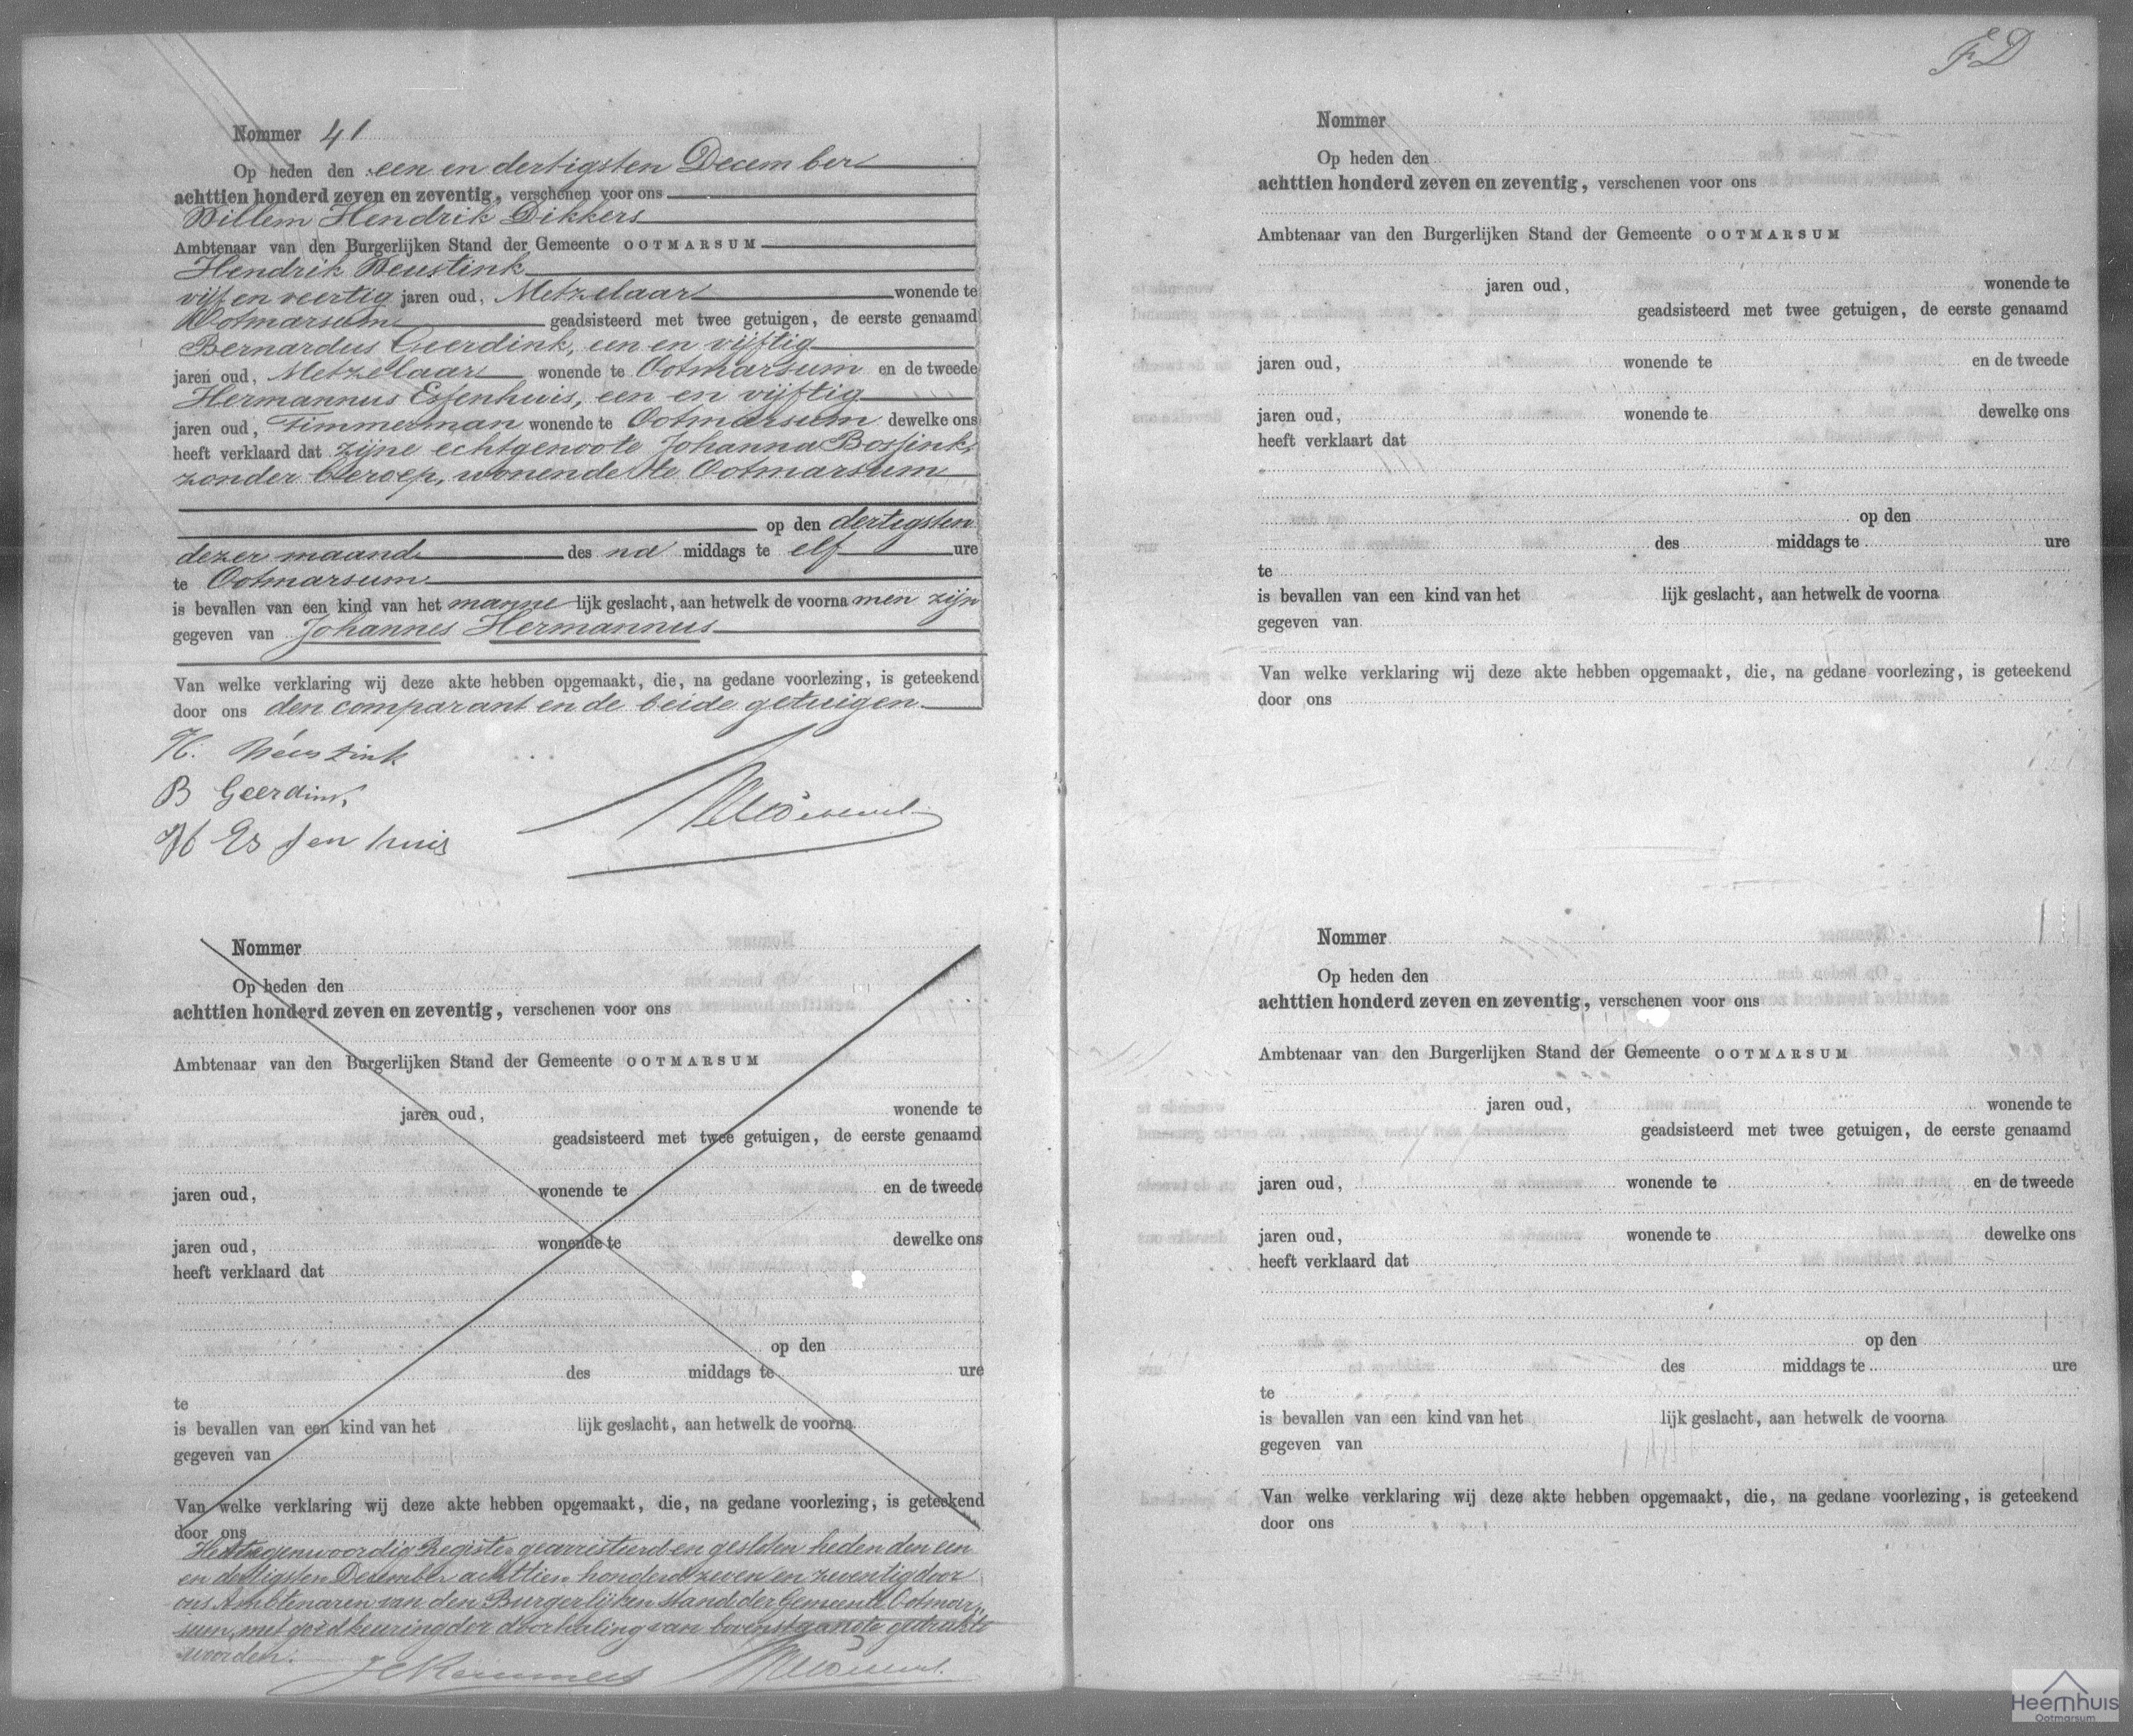 Nommer 41
Op heden den een en dertigsten December
achttien honderd zeven en zeventig, verschenen voor ons
Willem Hendrik Dikkers
Ambtenaar van den Burgerlijken Stand der Gemeente OOTMARSUM
Hendrik Neustink
vijf en veertig jaren oud, Metzelaar wonende te
Ootmarsum geadsisteerd met twee getuigen, de eerste genaamd
Bernardus Geerdink, een en vijftig
jaren oud, Metzelaar wonende te Ootmarsum en de tweede
Hermannus Essenhuis, een en vijftig
jaren oud, Timmerman wonende te Ootmarsum dewelke ons
heeft verklaard dat zijne echtgenoote Johanna Bossink,
zonder beroep, wonende te Ootmarsum
op den dertigsten
dezer maand des na middags te elf ure
te Ootmarsum
is bevallen van een kind van het manne lijk geslacht, aan hetwelk de voorna men zijn
gegeven van Johannes Hermannus
Van welke verklaring wij deze akte hebben opgemaakt, die, na gedane voorlezing, is geteekend
door ons den comparant en de beide getuigen.
H. Neustink
B Geerdink
H Essenhuis
Nommer
Op heden den
achttien honderd zeven en zeventig, verschenen voor ons
Ambtenaar van den Burgerlijken Stand der Gemeente OOTMARSUM
jaren oud, wonende te
geadsisteerd met twee getuigen, de eerste genaamd
jaren oud, wonende te en de tweede
jaren oud, wonende te dewelke ons
heeft verklaard dat
op den
des middags te ure
te
is bevallen van een kind van het lijk geslacht, aan hetwelk de voorna
gegeven van
Van welke verklaring wij deze akte hebben opgemaakt, die, na gedane voorlezing, is geteekend
door ons
Het tegenwoordig Register gearresteerd en gesloten heden den een
en dertigsten December achttien honderd zeven en zeventig door
ons Ambtenaren van den Burgerlijken stand der Gemeente Ootmar-
sum, met goedkeuring der doorhaling van bovenstaande gedrukte
woorden.
FD
Nommer
Op heden den
achttien honderd zeven en zeventig, verschenen voor ons
Ambtenaar van den Burgerlijken Stand der Gemeente OOTMARSUM
jaren oud, wonende te
geadsisteerd met twee getuigen, de eerste genaamd
jaren oud, wonende te en de tweede
jaren oud, wonende te dewelke ons
heeft verklaart dat
op den
des middags te ure
te
is bevallen van een kind van het lijk geslacht, aan hetwelk de voorna
gegeven van
Van welke verklaring wij deze akte hebben opgemaakt, die, na gedane voorlezing, is geteekend
door ons
Nommer
Op heden den
achttien honderd zeven en zeventig, verschenen voor ons
Ambtenaar van den Burgerlijken Stand der Gemeente OOTMARSUM
jaren oud, wonende te
geadsisteerd met twee getuigen, de eerste genaamd
jaren oud, wonende te en de tweede
jaren oud, wonende te dewelke ons
heeft verklaard dat
op den
des middags te ure
te
is bevallen van een kind van het lijk geslacht, aan hetwelk de voorna
gegeven van
Van welke verklaring wij deze akte hebben opgemaakt, die, na gedane voorlezing, is geteekend
door ons
Heemhuis
Ootmarsum